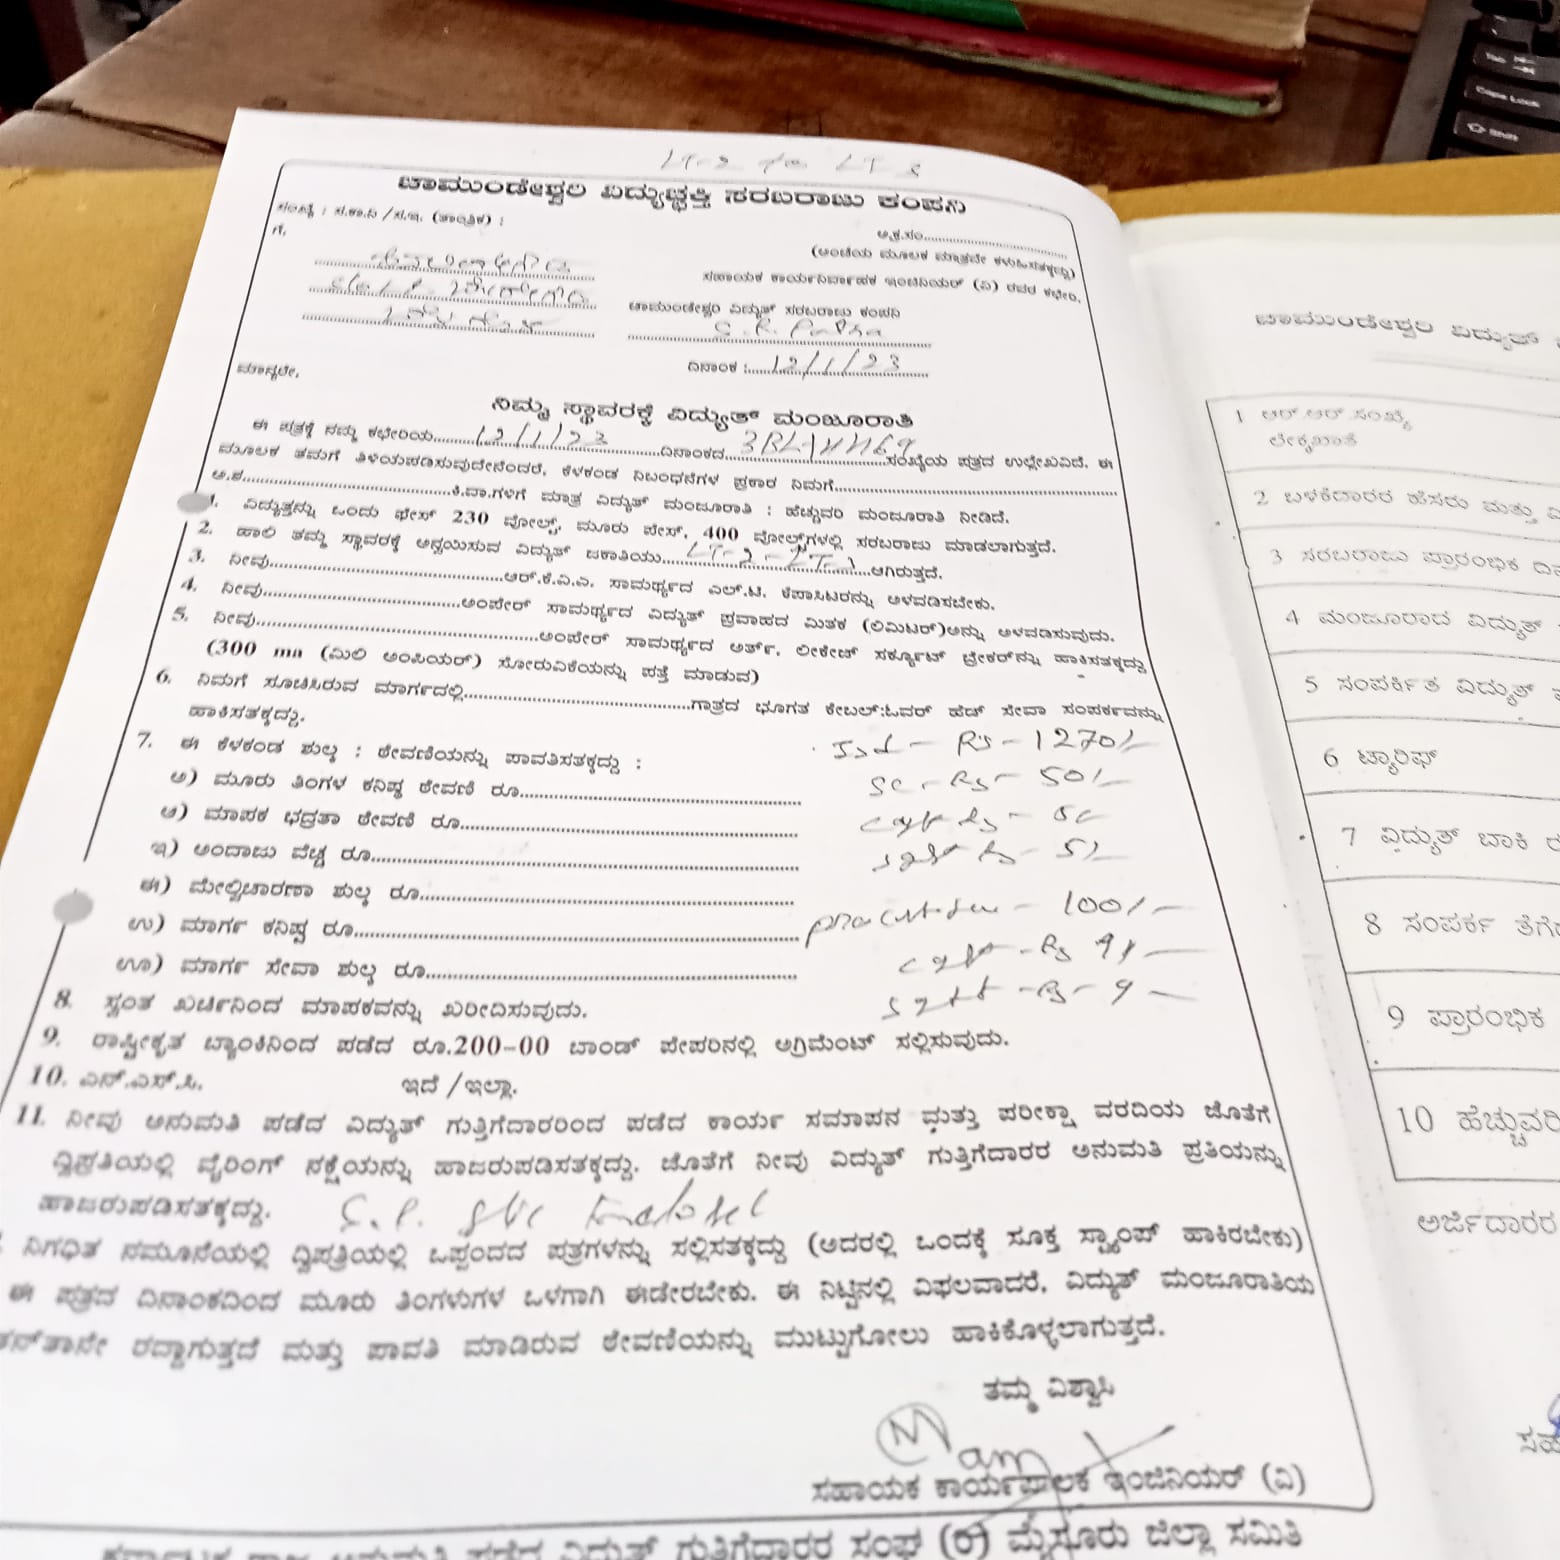 LT-2 to LT 3
ಚಾಮುಂಡೇಶ್ವರಿ ವಿದ್ಯುಚ್ಛಕ್ತಿ ಸರಬರಾಜು ಕಂಪನಿ
ಸಂಖ್ಯೆ : ಸ.ಕಾ.ನಿ /ಸ.ಇ. (ತಾಂತ್ರಿಕ) :
ಗೆ,
(ಅಂಚೆಯ ಮೂಲಕ ಮಾತ್ರವೇ ಕಳುಹಿಸತಕ್ಕದ್ದು)
ಸಹಾಯಕ ಕಾರ್ಯನಿರ್ವಾಹಕ ಇಂಜಿನಿಯರ್ (ವಿ) ರವರ ಕಛೇರಿ,
ಚಾಮುಂಡೇಶ್ವರಿ ವಿದ್ಯುತ್ ಸರಬರಾಜು ಕಂಪನಿ
ದಿನಾಂಕ :.....12/1/23
ಮಾನ್ಯರೇ,
ನಿಮ್ಮ ಸ್ಥಾವರಕ್ಕೆ ವಿದ್ಯುತ್ ಮಂಜೂರಾತಿ
ಈ ಪತ್ರಕ್ಕೆ ನಮ್ಮ ಕಛೇರಿಯ.....12/1/23.....ದಿನಾಂಕದ..........ಸಂಖ್ಯೆಯ ಪತ್ರದ ಉಲ್ಲೇಖವಿದೆ. ಈ
ಮೂಲಕ ತಮಗೆ ತಿಳಿಯಪಡಿಸುವುದೇನೆಂದರೆ, ಕೆಳಕಂಡ ನಿಬಂಧನೆಗಳ ಪ್ರಕಾರ ನಿಮಗೆ..........
ಅ.ಶ..........ಕಿ.ವಾ.ಗಳಿಗೆ ಮಾತ್ರ ವಿದ್ಯುತ್ ಮಂಜೂರಾತಿ : ಹೆಚ್ಚುವರಿ ಮಂಜೂರಾತಿ ನೀಡಿದೆ.
1. ವಿದ್ಯುತ್ತನ್ನು ಒಂದು ಫೇಸ್ 230 ವೋಲ್ಟ್, ಮೂರು ಫೇಸ್, 400 ವೋಲ್ಟ್‌ಗಳಲ್ಲಿ ಸರಬರಾಜು ಮಾಡಲಾಗುತ್ತದೆ.
2. ಹಾಲಿ ತಮ್ಮ ಸ್ಥಾವರಕ್ಕೆ ಅನ್ವಯಿಸುವ ವಿದ್ಯುತ್ ಜಕಾತಿಯು..........ಆಗಿರುತ್ತದೆ.
3. ನೀವು..........ಆರ್.ಕೆ.ವಿ.ಎ. ಸಾಮರ್ಥ್ಯದ ಎಲ್.ಟಿ. ಕೆಪಾಸಿಟರನ್ನು ಅಳವಡಿಸಬೇಕು.
4. ನೀವು..........ಅಂಪೇರ್ ಸಾಮರ್ಥ್ಯದ ವಿದ್ಯುತ್ ಪ್ರವಾಹದ ಮಿತಕ (ಲಿಮಿಟರ್)ಅನ್ನು ಅಳವಡಿಸುವುದು.
5. ನೀವು..........ಅಂಪೇರ್ ಸಾಮರ್ಥ್ಯದ ಅರ್ತ್. ಲೀಕೇಜ್ ಸರ್ಕ್ಯೂಟ್ ಬ್ರೇಕರ್‌ನ್ನು ಹಾಕಿಸತಕ್ಕದ್ದು
(300 ma (ಮಿಲಿ ಅಂಪಿಯರ್) ಸೋರುವಿಕೆಯನ್ನು ಪತ್ತೆ ಮಾಡುವ)
6. ನಿಮಗೆ ಸೂಚಿಸಿರುವ ಮಾರ್ಗದಲ್ಲಿ..........ಗಾತ್ರದ ಭೂಗತ ಕೇಬಲ್:ಓವರ್ ಹೆಡ್ ಸೇವಾ ಸಂಪರ್ಕವನ್ನು
ಹಾಕಿಸತಕ್ಕದ್ದು.
7. ಈ ಕೆಳಕಂಡ ಶುಲ್ಕ : ಠೇವಣಿಯನ್ನು ಪಾವತಿಸತಕ್ಕದ್ದು :
Isd - Rs - 1270/-
ಅ) ಮೂರು ತಿಂಗಳ ಕನಿಷ್ಠ ಠೇವಣಿ ರೂ..........
SC - Rs - 50/-
ಆ) ಮಾಪಕ ಭದ್ರತಾ ಠೇವಣಿ ರೂ..........
ಇ) ಅಂದಾಜು ವೆಚ್ಚ ರೂ..........
ಈ) ಮೇಲ್ವಿಚಾರಣಾ ಶುಲ್ಕ ರೂ..........
100/-
ಉ) ಮಾರ್ಗ ಕನಿಷ್ಠ ರೂ..........
ಊ) ಮಾರ್ಗ ಸೇವಾ ಶುಲ್ಕ ರೂ..........
8. ಸ್ವಂತ ಖರ್ಚಿನಿಂದ ಮಾಪಕವನ್ನು ಖರೀದಿಸುವುದು.
9. ರಾಷ್ಟ್ರೀಕೃತ ಬ್ಯಾಂಕಿನಿಂದ ಪಡೆದ ರೂ.200-00 ಬಾಂಡ್ ಪೇಪರಿನಲ್ಲಿ ಅಗ್ರಿಮೆಂಟ್ ಸಲ್ಲಿಸುವುದು.
10. ಎನ್.ಎಸ್.ಸಿ. ಇದೆ /ಇಲ್ಲಾ.
11. ನೀವು ಅನುಮತಿ ಪಡೆದ ವಿದ್ಯುತ್ ಗುತ್ತಿಗೆದಾರರಿಂದ ಪಡೆದ ಕಾರ್ಯ ಸಮಾಪನ ಮತ್ತು ಪರೀಕ್ಷಾ ವರದಿಯ ಜೊತೆಗೆ
ದ್ವಿಪ್ರತಿಯಲ್ಲಿ ವೈರಿಂಗ್ ನಕ್ಷೆಯನ್ನು ಹಾಜರುಪಡಿಸತಕ್ಕದ್ದು. ಜೊತೆಗೆ ನೀವು ವಿದ್ಯುತ್ ಗುತ್ತಿಗೆದಾರರ ಅನುಮತಿ ಪ್ರತಿಯನ್ನು
ಹಾಜರುಪಡಿಸತಕ್ಕದ್ದು.
ನಿಗಧಿತ ನಮೂನೆಯಲ್ಲಿ ದ್ವಿಪ್ರತಿಯಲ್ಲಿ ಒಪ್ಪಂದದ ಪತ್ರಗಳನ್ನು ಸಲ್ಲಿಸತಕ್ಕದ್ದು (ಅದರಲ್ಲಿ ಒಂದಕ್ಕೆ ಸೂಕ್ತ ಸ್ಟ್ಯಾಂಪ್ ಹಾಕಿರಬೇಕು)
ಈ ಪತ್ರದ ದಿನಾಂಕದಿಂದ ಮೂರು ತಿಂಗಳುಗಳ ಒಳಗಾಗಿ ಈಡೇರಬೇಕು. ಈ ನಿಟ್ಟಿನಲ್ಲಿ ವಿಫಲವಾದರೆ, ವಿದ್ಯುತ್ ಮಂಜೂರಾತಿಯ
ರದ್ದಾಗುತ್ತದೆ ಮತ್ತು ಪಾವತಿ ಮಾಡಿರುವ ಠೇವಣಿಯನ್ನು ಮುಟ್ಟುಗೋಲು ಹಾಕಿಕೊಳ್ಳಲಾಗುತ್ತದೆ.
ತಮ್ಮ ವಿಶ್ವಾಸಿ
ಸಹಾಯಕ ಕಾರ್ಯಪಾಲಕ ಇಂಜಿನಿಯರ್ (ವಿ)
ಗುತ್ತಿಗೆದಾರರ ಸಂಘ (ರಿ) ಮೈಸೂರು ಜಿಲ್ಲಾ ಸಮಿತಿ
ಚಾಮುಂಡೇಶ್ವರಿ ವಿದ್ಯುತ್
1 ಆರ್.ಆರ್.ಸಂಖ್ಯೆ
ಲೆಕ್ಕಖಾತೆ
2 ಬಳಕೆದಾರರ ಹೆಸರು ಮತ್ತು
3 ಸರಬರಾಜು ಪ್ರಾರಂಭಿಕ
4 ಮಂಜೂರಾದ ವಿದ್ಯುತ್
5 ಸಂಪರ್ಕಿತ ವಿದ್ಯುತ್
6 ಟ್ಯಾರಿಫ್
7 ವಿದ್ಯುತ್ ಬಾಕಿ
8 ಸಂಪರ್ಕ
9 ಪ್ರಾರಂಭಿಕ
10 ಹೆಚ್ಚುವರಿ
ಅರ್ಜಿದಾರರ
Tab
Caps Lock
Shift